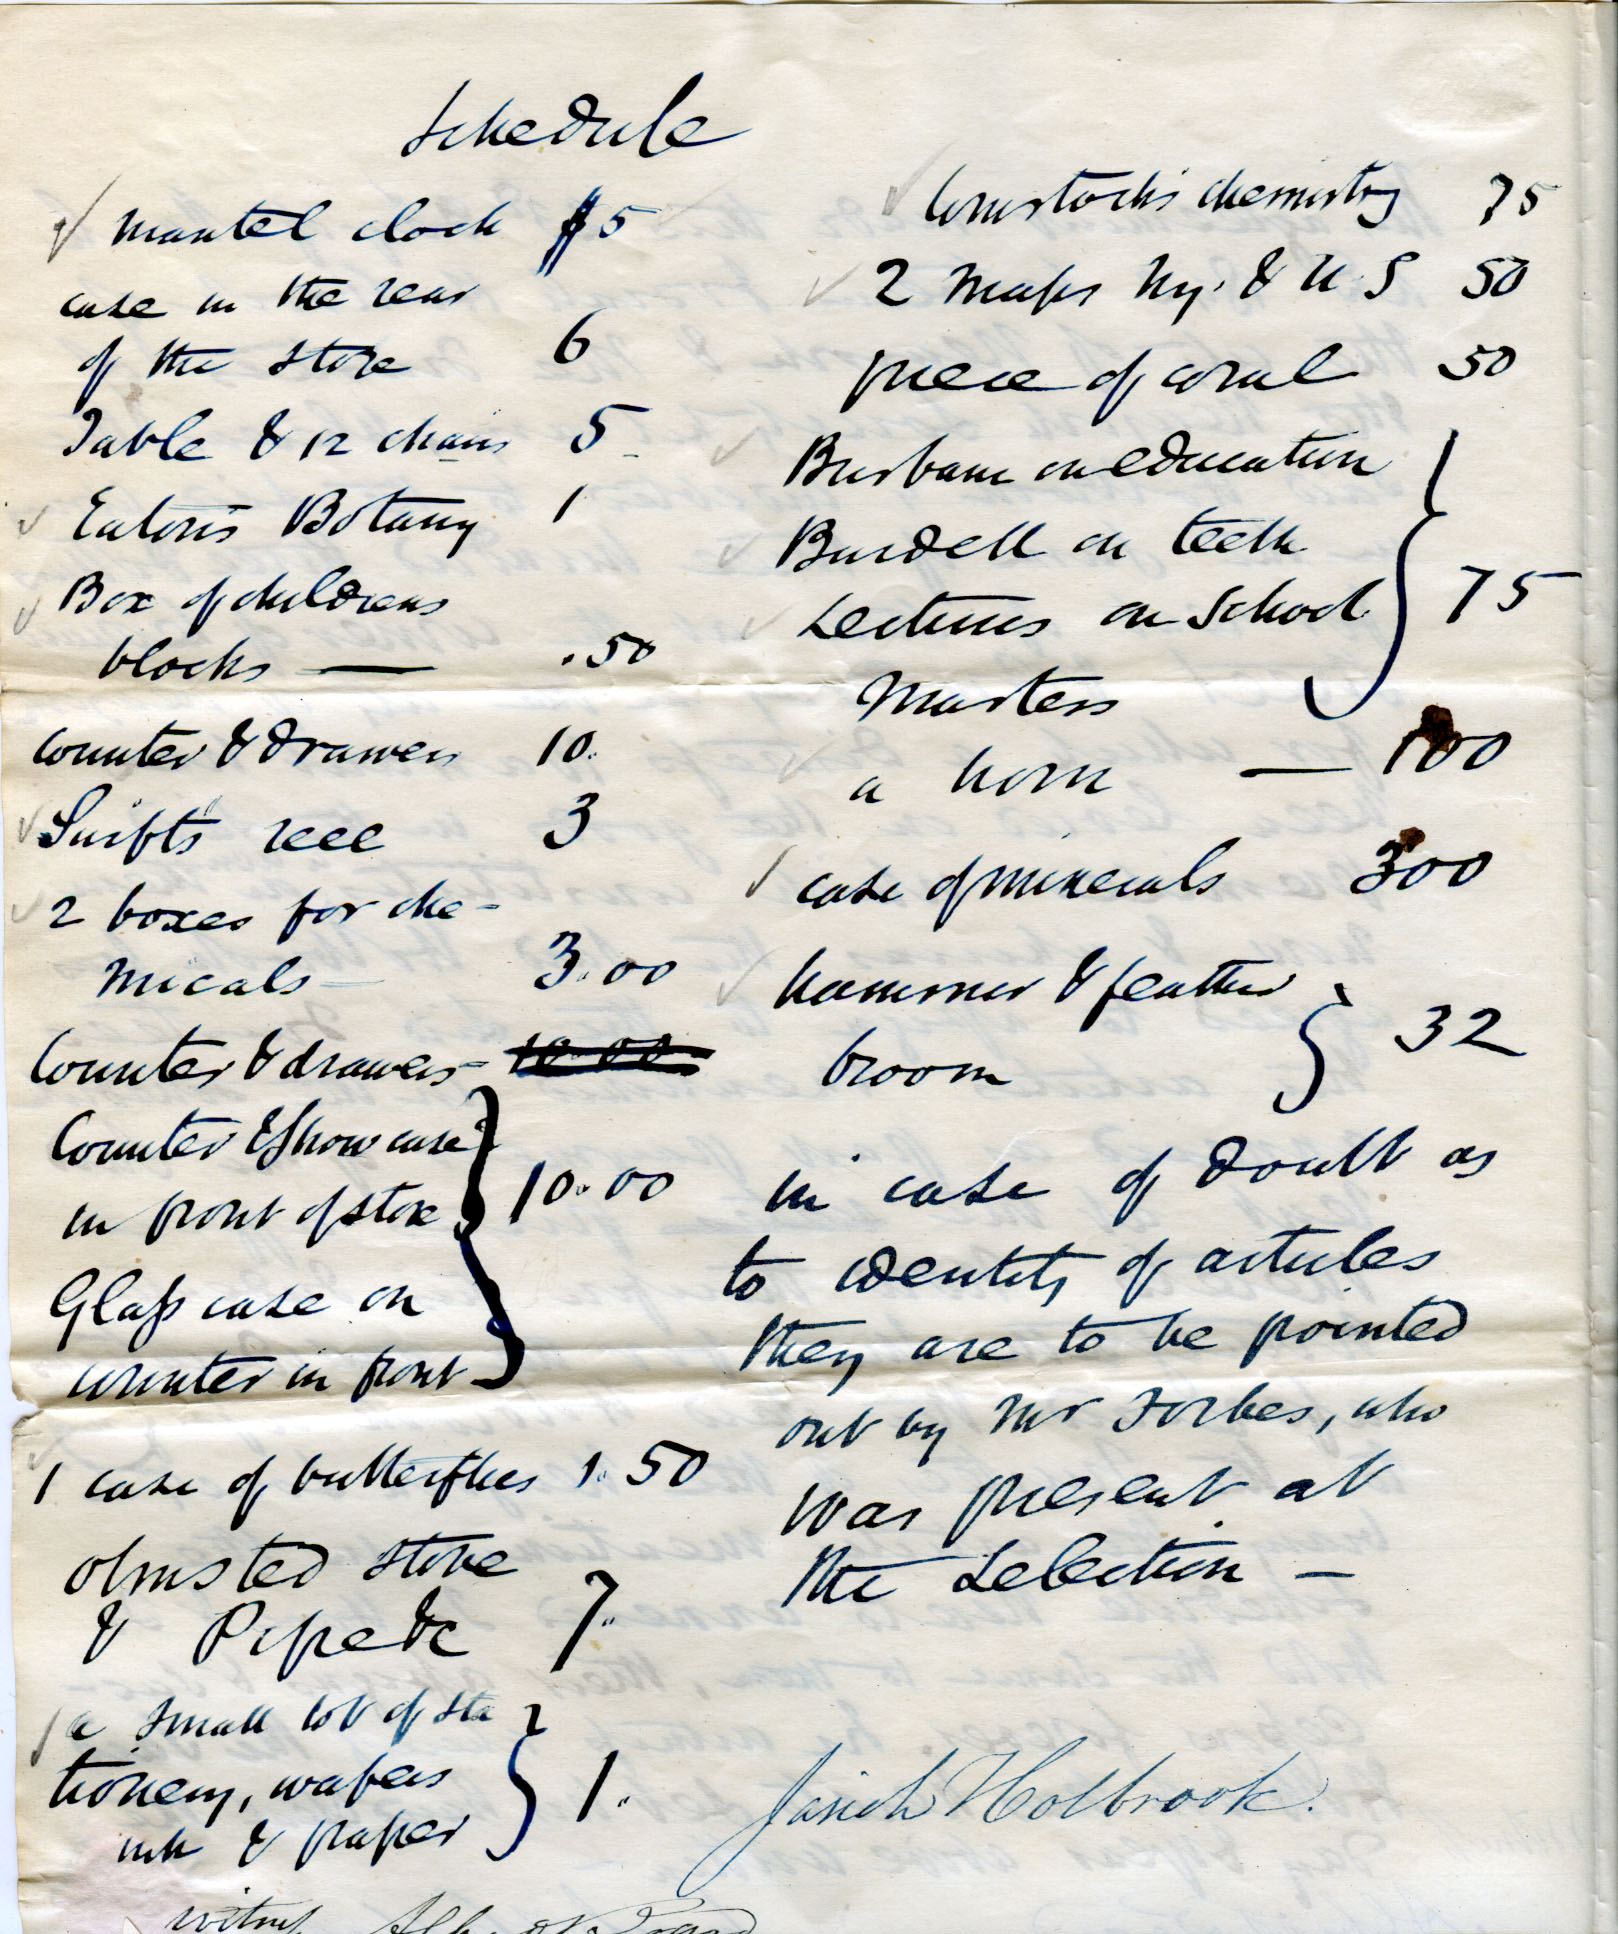 Schedule
Mantel clock $5
case in the rear
of the store 6
Table & 12 chairs 5
Eaton's Botany 1
Box of childrens
blocks — .50
Counter & drawers 10.
Swifts reel 3
2 boxes for che-
micals — 3.00
Counter & drawers 10.00
Counter & Show case
in front of store 10.00
Glass case on
counter in front
1 case of butterflies 1.50
Olmsted stove
& Pipe &c 7.
a small lot of sta
tionery, wafers
ink & paper 1.
Witness
Comstock's chemistry 75
2 Maps N.y. & U.S 50
piece of coral 50
Brisbane on education
Burdell on teeth
Lectures on School 75
Masters
a horn — 100
case of minerals 300
hammer & feather
broom 32
in case of doubt as
to identity of articles
they are to be pointed
out by Mr Forbes, who
was present at
the Selection —
Josiah Holbrook.